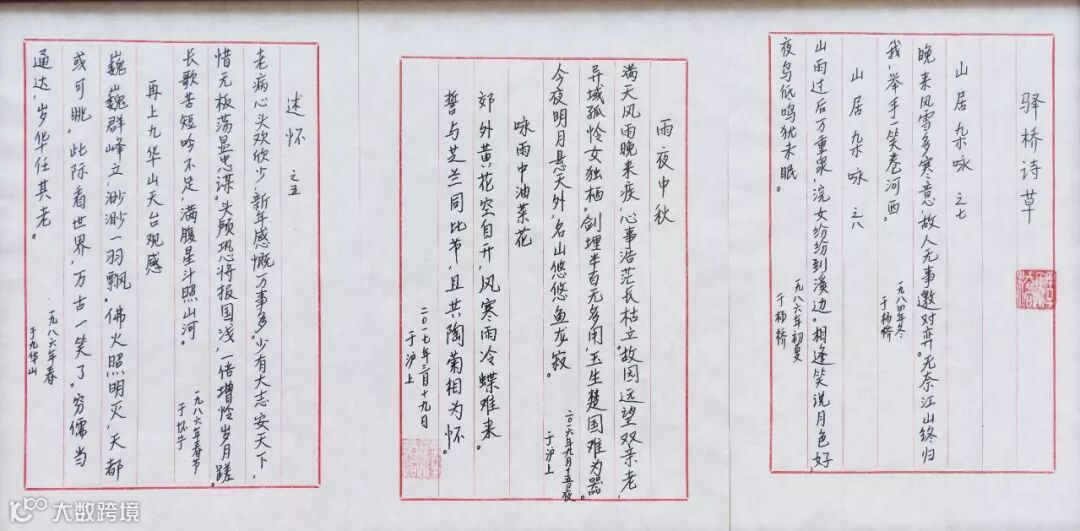 驿桥诗草
山居杂咏 之七
晚来风雪多寒意,故人无事邀对弈。无奈江山终归
我,举手一笑卷河西。
一九八四年冬
于杨桥
山居杂咏 之八
山雨过后万重泉,浣女纷纷到溪边。相逢笑说月色好,
夜鸟低鸣犹未眠。
一九八六年初夏
于杨桥
雨夜中秋
满天风雨晚来疾,心事浩茫长枯立。故园远望双亲老,
异域孤怜女独栖。剑埋半百无多用,玉生楚国难为器。
今夜明月悬天外,名山悠悠鱼龙寂。
二〇一六年九月十五夜
于沪上
咏雨中油菜花
郊外黄花空自开,风寒雨冷蝶难来。
誓与芝兰同比节,且共陶菊相为怀。
二〇一七年三月十九日
于沪上
述怀 之五
老病心头欢欣少,新年感慨万事多。少有大志安天下,
惜无板荡显忠谋。头颅恐将报国浅,一倍增怜岁月蹉。
长歌苦短吟不足,满腹星斗照山河。
一九八六年春节
于怀宁
再上九华山天台观感
巍巍群峰立,渺渺一羽飘。佛火照明灭,天都
或可眺。此际看世界,万古一笑了。穷儒当
通达,岁华任其老。
一九八六年春
于九华山
大数跨境